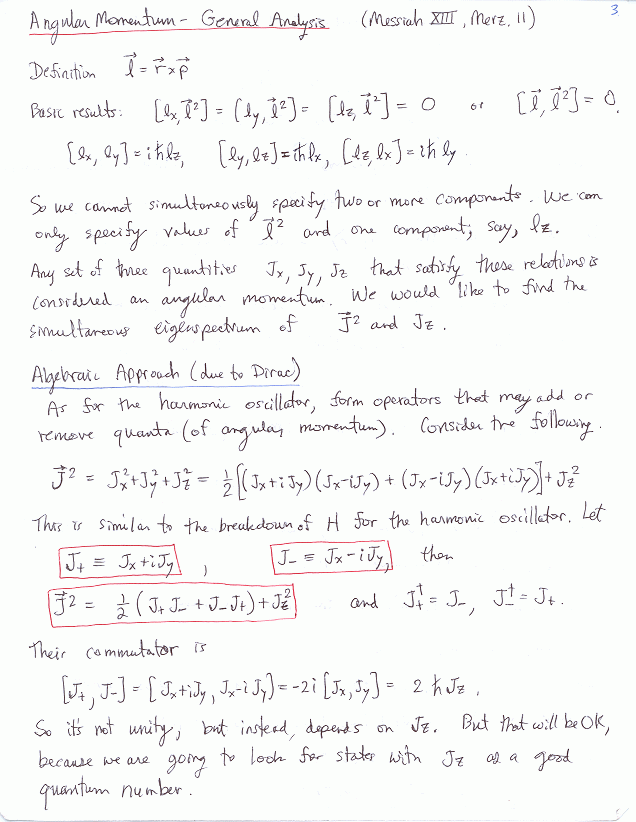 3
Angular Momentum - General Analysis (Messiah XIII, Merz. 11)
Definition l⃗ = r⃗ × p⃗
Basic results: [lx, l⃗²] = [ly, l⃗²] = [lz, l⃗²] = 0 or [l⃗, l⃗²] = 0.
[lx, ly] = iħlz, [ly, lz] = iħlx, [lz, lx] = iħly.
So we cannot simultaneously specify two or more components. We can
only specify values of l⃗² and one component; say, lz.
Any set of three quantities Jx, Jy, Jz that satisfy these relations is
considered an angular momentum. We would like to find the
simultaneous eigenspectrum of J⃗² and Jz.
Algebraic Approach (due to Dirac)
As for the harmonic oscillator, form operators that may add or
remove quanta (of angular momentum). Consider the following.
J⃗² = Jx² + Jy² + Jz² = ½[(Jx+iJy)(Jx-iJy) + (Jx-iJy)(Jx+iJy)] + Jz²
This is similar to the breakdown of H for the harmonic oscillator. Let
J₊ ≡ Jx+iJy, J₋ ≡ Jx-iJy, then
J⃗² = ½(J₊J₋ + J₋J₊) + Jz² and J₊† = J₋, J₋† = J₊.
Their commutator is
[J₊, J₋] = [Jx+iJy, Jx-iJy] = -2i[Jx, Jy] = 2ħJz.
So it's not unity, but instead depends on Jz. But that will be OK,
because we are going to look for states with Jz as a good
quantum number.